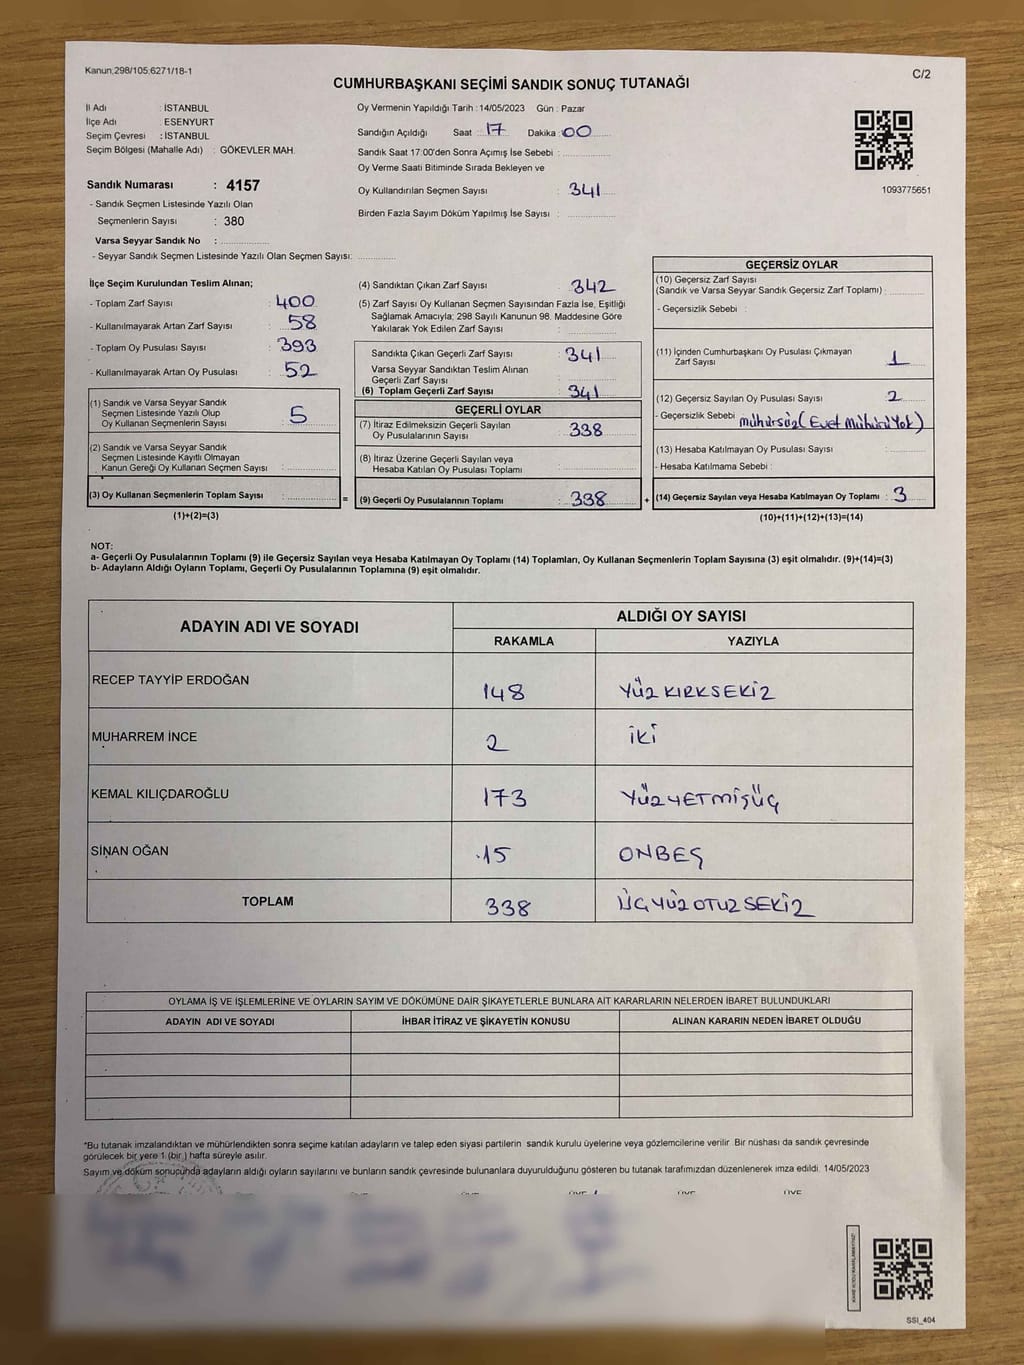 Kanun:298/105:6271/18-1
C/2
CUMHURBAŞKANI SEÇİMİ SANDIK SONUÇ TUTANAĞI
İl Adı : İSTANBUL
İlçe Adı : ESENYURT
Seçim Çevresi : İSTANBUL
Seçim Bölgesi (Mahalle Adı) : GÖKEVLER MAH.
Sandık Numarası : 4157
- Sandık Seçmen Listesinde Yazılı Olan
Seçmenlerin Sayısı : 380
Varsa Seyyar Sandık No :
- Seyyar Sandık Seçmen Listesinde Yazılı Olan Seçmen Sayısı:
Oy Vermenin Yapıldığı Tarih : 14/05/2023 Gün : Pazar
Sandığın Açıldığı Saat : 17 Dakika : 00
Sandık Saat 17:00'den Sonra Açımış İse Sebebi :
Oy Verme Saati Bitiminde Sırada Bekleyen ve
Oy Kullandırılan Seçmen Sayısı : 341
Birden Fazla Sayım Döküm Yapılmış İse Sayısı :
1093775651
İlçe Seçim Kurulundan Teslim Alınan;
- Toplam Zarf Sayısı : 400
- Kullanılmayarak Artan Zarf Sayısı : 58
- Toplam Oy Pusulası Sayısı : 393
- Kullanılmayarak Artan Oy Pusulası : 52
(1) Sandık ve Varsa Seyyar Sandık
Seçmen Listesinde Yazılı Olup
Oy Kullanan Seçmenlerin Sayısı : 5
(2) Sandık ve Varsa Seyyar Sandık
Seçmen Listesinde Kayıtlı Olmayan
Kanun Gereği Oy Kullanan Seçmen Sayısı :
(3) Oy Kullanan Seçmenlerin Toplam Sayısı :
(1)+(2)=(3)
=
(4) Sandıktan Çıkan Zarf Sayısı : 342
(5) Zarf Sayısı Oy Kullanan Seçmen Sayısından Fazla İse, Eşitliği
Sağlamak Amacıyla; 298 Sayılı Kanunun 98. Maddesine Göre
Yakılarak Yok Edilen Zarf Sayısı :
Sandıkta Çıkan Geçerli Zarf Sayısı : 341
Varsa Seyyar Sandıktan Teslim Alınan
Geçerli Zarf Sayısı :
(6) Toplam Geçerli Zarf Sayısı : 341
GEÇERLİ OYLAR
(7) İtiraz Edilmeksizin Geçerli Sayılan
Oy Pusulalarının Sayısı : 338
(8) İtiraz Üzerine Geçerli Sayılan veya
Hesaba Katılan Oy Pusulası Toplamı :
(9) Geçerli Oy Pusulalarının Toplamı : 338
+
GEÇERSİZ OYLAR
(10) Geçersiz Zarf Sayısı
(Sandık ve Varsa Seyyar Sandık Geçersiz Zarf Toplamı) :
- Geçersizlik Sebebi :
(11) İçinden Cumhurbaşkanı Oy Pusulası Çıkmayan
Zarf Sayısı : 1
(12) Geçersiz Sayılan Oy Pusulası Sayısı : 2
- Geçersizlik Sebebi mühürsüz (Evet Mührü Yok)
(13) Hesaba Katılmayan Oy Pusulası Sayısı :
- Hesaba Katılmama Sebebi :
(14) Geçersiz Sayılan veya Hesaba Katılmayan Oy Toplamı : 3
(10)+(11)+(12)+(13)=(14)
NOT:
a- Geçerli Oy Pusulalarının Toplamı (9) ile Geçersiz Sayılan veya Hesaba Katılmayan Oy Toplamı (14) Toplamları, Oy Kullanan Seçmenlerin Toplam Sayısına (3) eşit olmalıdır. (9)+(14)=(3)
b- Adayların Aldığı Oyların Toplamı, Geçerli Oy Pusulalarının Toplamına (9) eşit olmalıdır.
ADAYIN ADI VE SOYADI
ALDIĞI OY SAYISI
RAKAMLA YAZIYLA
RECEP TAYYİP ERDOĞAN 148 YÜZ KIRKSEKİZ
MUHARREM İNCE 2 İKİ
KEMAL KILIÇDAROĞLU 173 YÜZYETMİŞÜÇ
SİNAN OĞAN 15 ONBEŞ
TOPLAM 338 ÜÇYÜZ OTUZ SEKİZ
OYLAMA İŞ VE İŞLEMLERİNE VE OYLARIN SAYIM VE DÖKÜMÜNE DAİR ŞİKAYETLERLE BUNLARA AİT KARARLARIN NELERDEN İBARET BULUNDUKLARI
ADAYIN ADI VE SOYADI İHBAR İTİRAZ VE ŞİKAYETİN KONUSU ALINAN KARARIN NEDEN İBARET OLDUĞU
*Bu tutanak imzalandıktan ve mühürlendikten sonra seçime katılan adayların ve talep eden siyasi partilerin sandık kurulu üyelerine veya gözlemcilerine verilir. Bir nüshası da sandık çevresinde
görülecek bir yere 1 (bir ) hafta süreyle asılır.
Sayım ve döküm sonucunda adayların aldığı oyların sayılarını ve bunların sandık çevresinde bulunanlara duyurulduğunu gösteren bu tutanak tarafımızdan düzenlenerek imza edildi. 14/05/2023
ÜYE ÜYE
SSI_404